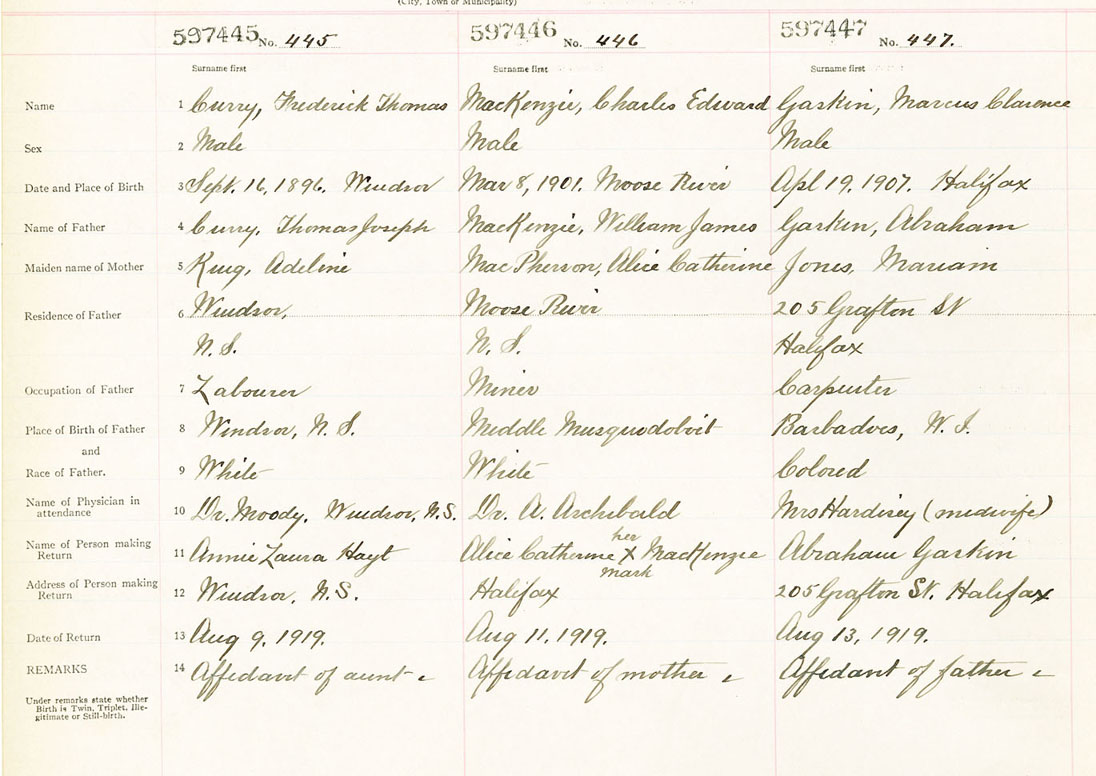 (City, Town or Municipality)
597445 No. 445 597446 No. 446 597447 No. 447.
Surname first Surname first Surname first
Name 1 Curry, Frederick Thomas MacKenzie, Charles Edward Gaskin, Marcus Clarence
Sex 2 Male Male Male
Date and Place of Birth 3 Sept. 16, 1896. Windsor Mar 8, 1901. Moose River Apl 19, 1907. Halifax
Name of Father 4 Curry, Thomas Joseph MacKenzie, William James Gaskin, Abraham
Maiden name of Mother 5 King, Adeline MacPherson, Alice Catherine Jones, Mariam
Residence of Father 6 Windsor, Moose River 205 Grafton St
N.S. N.S. Halifax
Occupation of Father 7 Labourer Miner Carpenter
Place of Birth of Father 8 Windsor, N.S. Middle Musquodoboit Barbadoes, W.I.
and
Race of Father. 9 White White Colored
Name of Physician in
attendance 10 Dr. Moody, Windsor, N.S. Dr. A. Archibald Mrs (midwife)
her
Name of Person making
Return 11 Annie Laura Hoyt Alice Catherine X MacKenzie Abraham Gaskin
mark
Address of Person making
Return 12 Windsor, N.S. Halifax 205 Grafton St. Halifax
Date of Return 13 Aug 9, 1919. Aug 11, 1919. Aug 13, 1919.
REMARKS 14 Affidavit of aunt Affidavit of mother Affidavit of father
Under remarks state whether
Birth is Twin, Triplet, Ille-
gitimate or Still-birth.